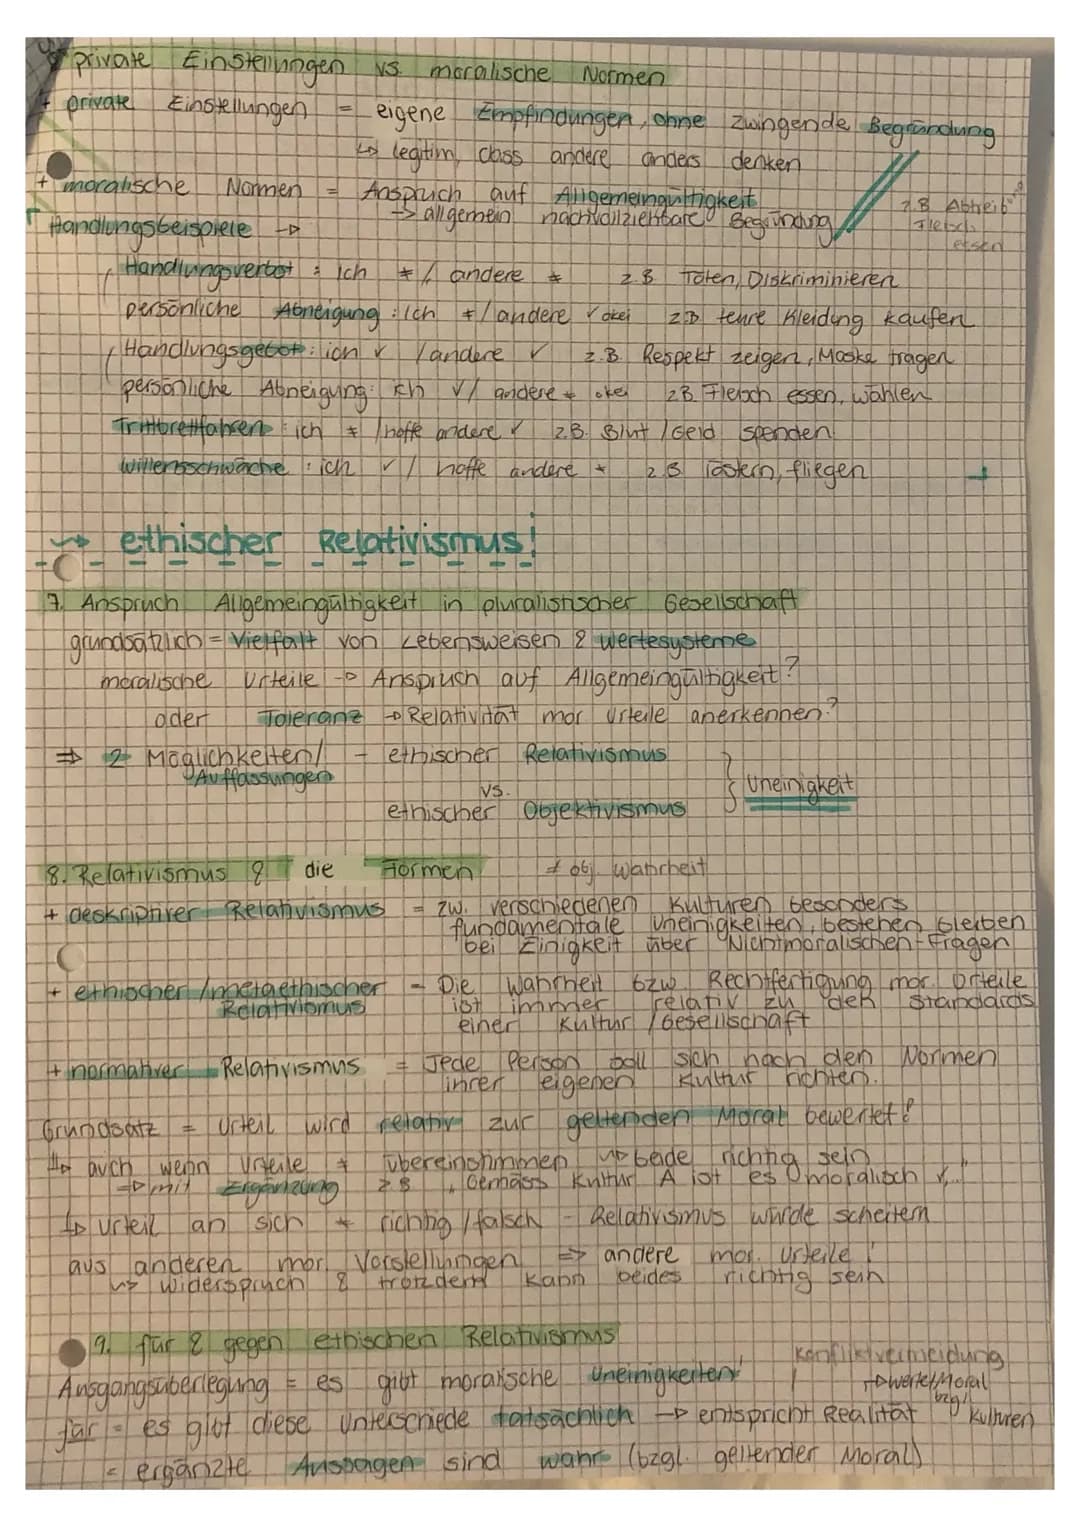 private Einstellungen vs. moralische Normen
+ private Einstellungen = eigene Empfindungen, ohne zwingende Begründung
↳ legitim, dass andere anders denken
+ moralische Normen = Anspruch auf Allgemeingültigkeit
→ allgemein nachvollziehbare Begründung
z.B Abtreibung
Fleisch
essen
Handlungsbeispiele →
Handlungsverbot : ich ≠ / andere ≠ z.B Töten, Diskriminieren
persönliche Abneigung : ich ≠ / andere ✓ okei z.B teure Kleidung kaufen
Handlungsgebot : ich ✓ / andere ✓ z.B. Respekt zeigen, Maske tragen
persönliche Abneigung : ich ✓ / andere ≠ okei z.B Fleisch essen, wählen
Trittbrettfahren : ich ≠ / hoffe andere ✓ z.B. Blut / Geld spenden
Willensschwäche : ich ✓ / hoffe andere ≠ z.B lästern, fliegen
→ ethischer Relativismus!
7. Anspruch Allgemeingültigkeit in pluralistischer Gesellschaft
grundsätzlich = Vielfalt von Lebensweisen & Wertesysteme
moralische Urteile → Anspruch auf Allgemeingültigkeit?
oder Toleranz → Relativität mor Urteile anerkennen?
⇒ 2 Möglichkeiten/ - ethischer Relativismus
Auffassungen
vs.
ethischer Objektivismus
} Uneinigkeit
8. Relativismus & die Formen ≠ obj. Wahrheit
+ deskriptiver Relativismus = zw. verschiedenen Kulturen besonders
fundamentale Uneinigkeiten, bestehen bleiben
bei Einigkeit über Nichtmoralischen-Fragen
+ ethischer / metaethischer = Die Wahrheit bzw. Rechtfertigung mor. Urteile
Relativismus ist immer relativ zu den Standards
einer Kultur / Gesellschaft
+ normativer Relativismus = Jede Person soll sich nach den Normen
ihrer eigenen Kultur richten.
Grundsatz = Urteil wird relativ zur geltenden Moral bewertet!
↳ auch wenn Urteile ≠ übereinstimmen → beide richtig sein
⇒ mit Ergänzung z.B „Gemäss Kultur A ist es moralisch ✓..."
↳ Urteil an sich ≠ richtig / falsch - Relativismus würde scheitern
aus anderen mor. Vorstellungen ⇒ andere mor. Urteile!
↳ Widerspruch & trotzdem kann beides richtig sein
9. für & gegen ethischen Relativismus
Ausgangsüberlegung = es gibt moralische Uneinigkeiten
Konfliktvermeidung
→ Werte/Moral
bzgl.
Kulturen
für = es gibt diese Unterschiede tatsächlich → entspricht Realität
= ergänzte Aussagen sind wahr (bzgl. geltender Moral)